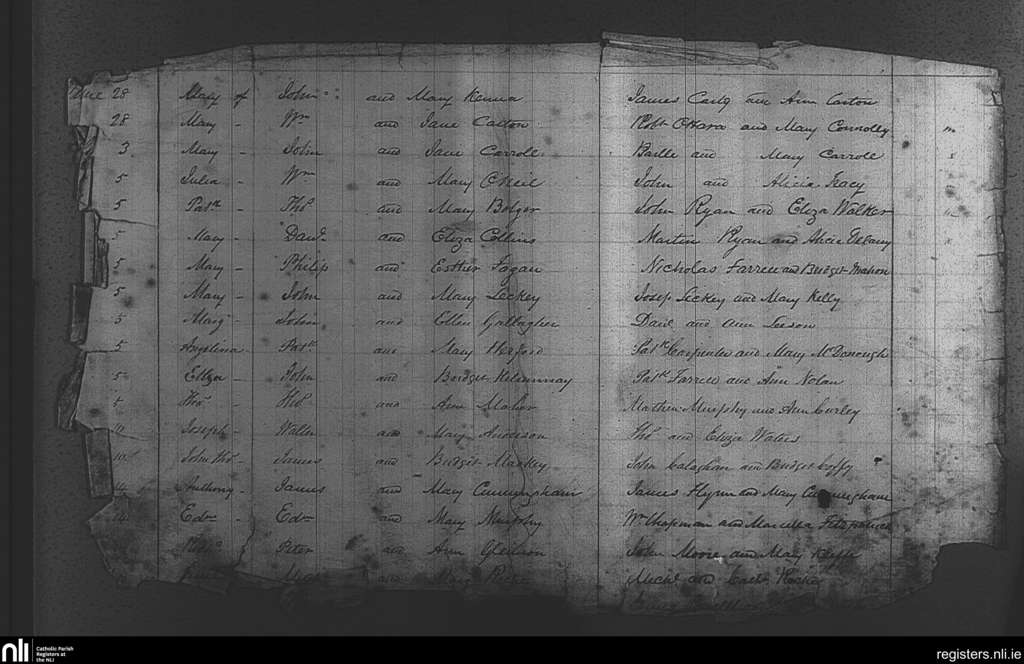 June 28 Mary of John and Mary Kenna James Carty and Ann Carton
28 Mary - Wm and Jane Carton Robt OHara and Mary Connolly
3 Mary - John and Jane Carroll Bartle and Mary Carroll
5 Julia - Wm and Mary O'Neil John and Alicia Tracy
5 Patk - Thos and Mary Bolger John Ryan and Eliza Walker
5 Mary - Danl and Eliza Collins Martin Ryan and Alice Delany
5 Mary - Philip and Esther Fagan Nicholas Farrell and Bridget Mahon
5 Mary - John and Mary Leckey Josep Lickey and Mary Kelly
5 Mary - John and Ellen Gallagher Danl and Ann Leeson
5 Angelina - Patk and Mary Hexford Patk Carpenter and Mary McDonough
5 Eliza - John and Bridget Patk Farrell and Ann Nolan
Thos - Thos and Ann Maher Mathew Murphy and Ann Curley
10 Joseph - Walter and Mary Anderson Thos and Eliza Waters
10 John Thos - James and Bridget Mackey John Calaghan and Bridget Coffy
14 Anthony - James and Mary Cunningham James Flynn and Mary Cunningham
14 Edw - Edw and Mary Murphy Wm Chapman and Marcella Fitzpatrick
Peter and Ann Gleeson John Moore and Mary Keeffe
and Mary Michl and
nli
Catholic Parish
Registers at
the NLI
registers.nli.ie